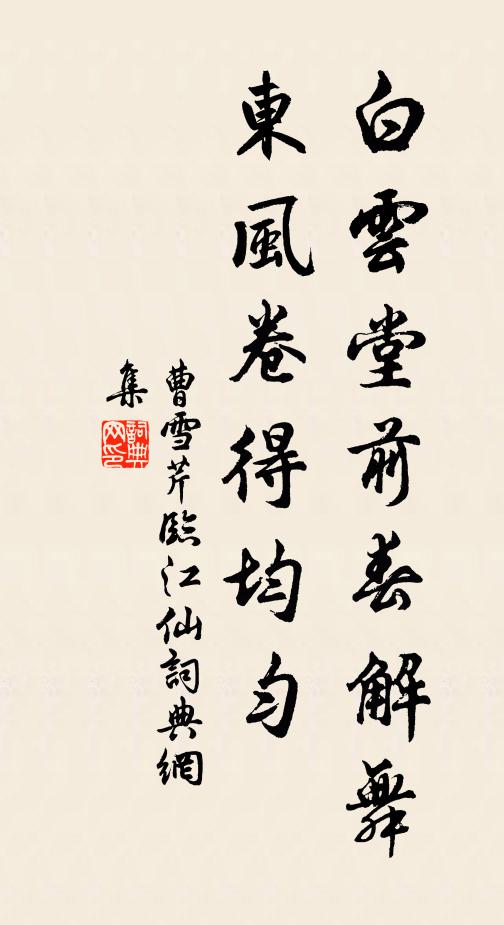 白雲堂前春解舞
東風卷得均勻
曹雪芹臨江仙詞典網
集
詞典
网印